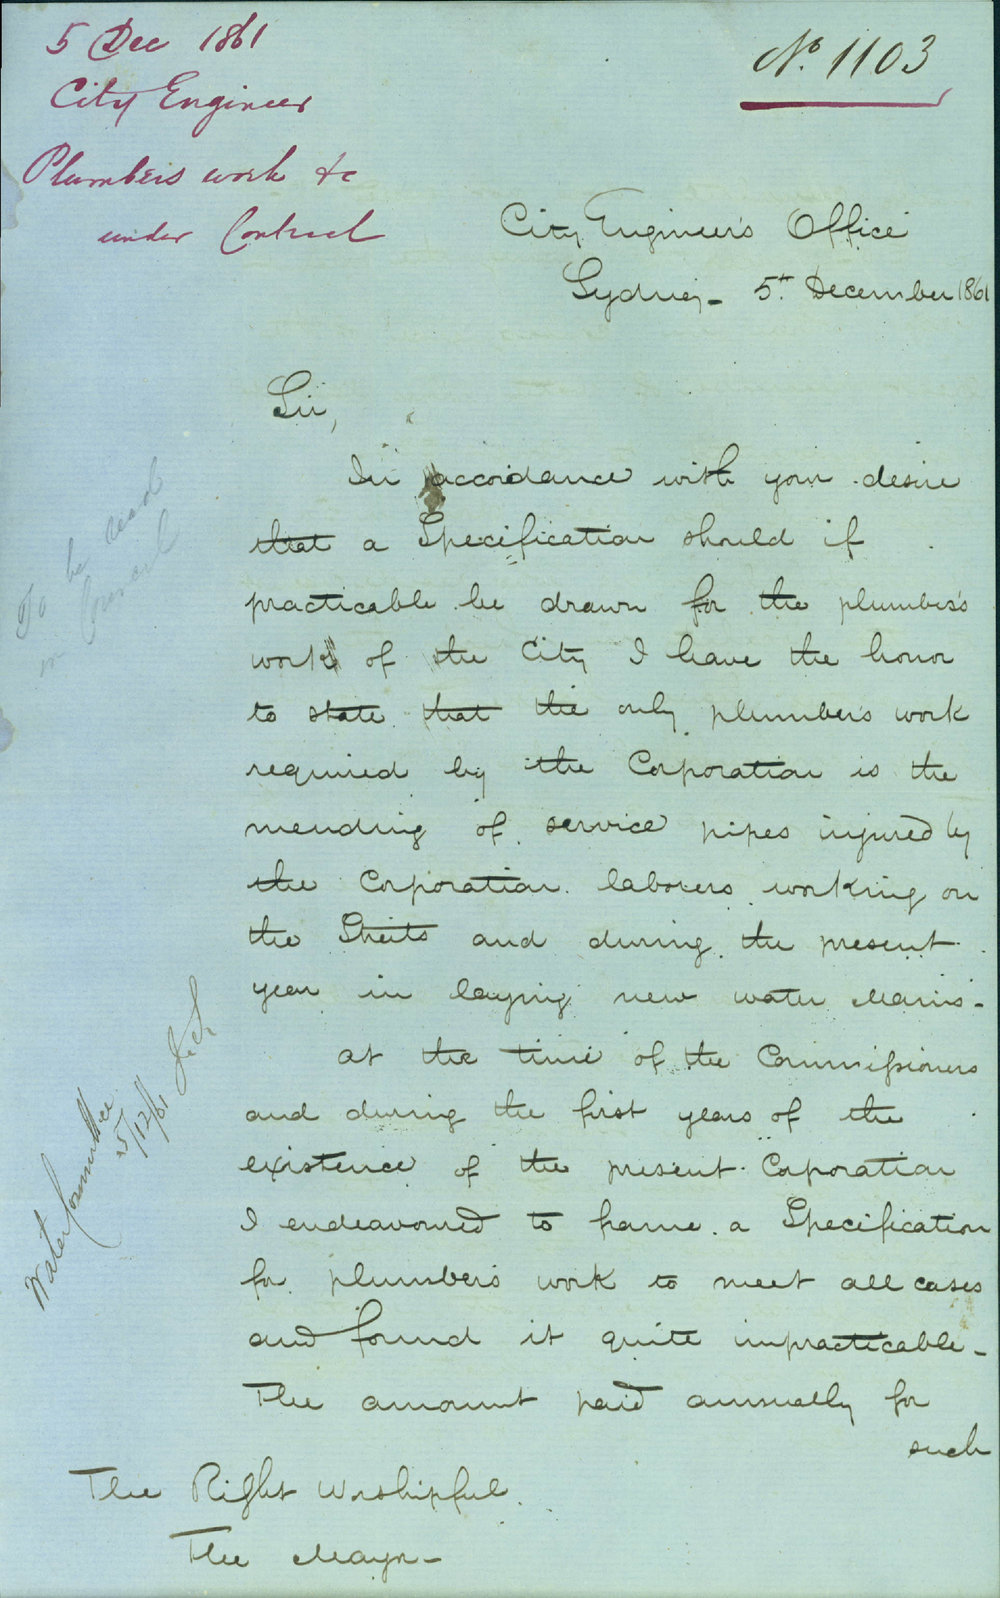 5 Dec 1861
City Engineer
Plumbers work &c
under Contract
No. 1103
City Engineer's Office
Sydney - 5th December 1861
Sir,
In accordance with your desire
that a Specification should if
practicable be drawn for the plumbers's
work of the City I have the honor
to state that the only plumbers work
required by the Corporation is the
mending of service pipes injured by
the Corporation laborers working on
the Streets and during the present
year in laying new water Mains -
At the time of the Commissioners
and during the first years of the
existence of the present Corporation
I endeavoured to frame a Specification
for plumbers work to meet all cases
and found it quite impracticable -
The amount paid annually for
such
The Right Worshipful
The Mayor -
To be read
in Council
Water Committee
5/12/61